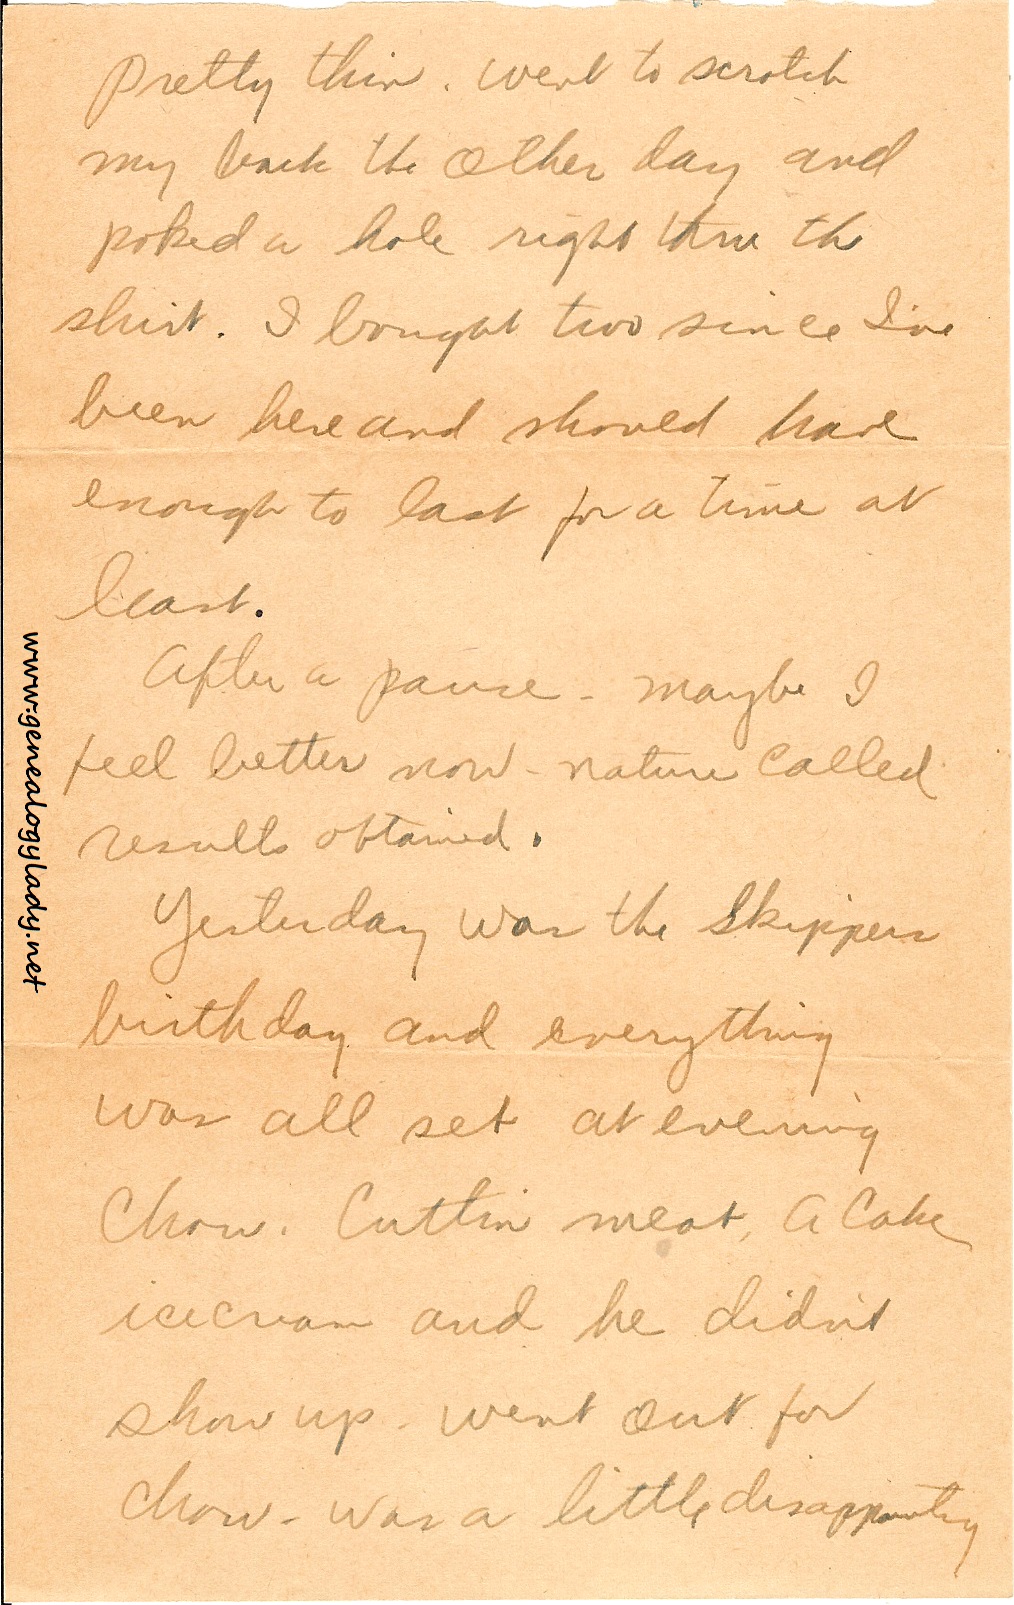 pretty thin. went to scratch
my back the other day and
poked a hole right thru the
shirt. I bought two since I've
been here and should have
enough to last for a time at
least.
After a pause - maybe I
feel better now - nature called
results obtained.
Yesterday was the Skippers
birthday and everything
was all set at evening
Chow. Cuttin meat, a Cake
icecream and he didn't
show up - went out for
chow - was a little disappointing
www.genealogylady.net